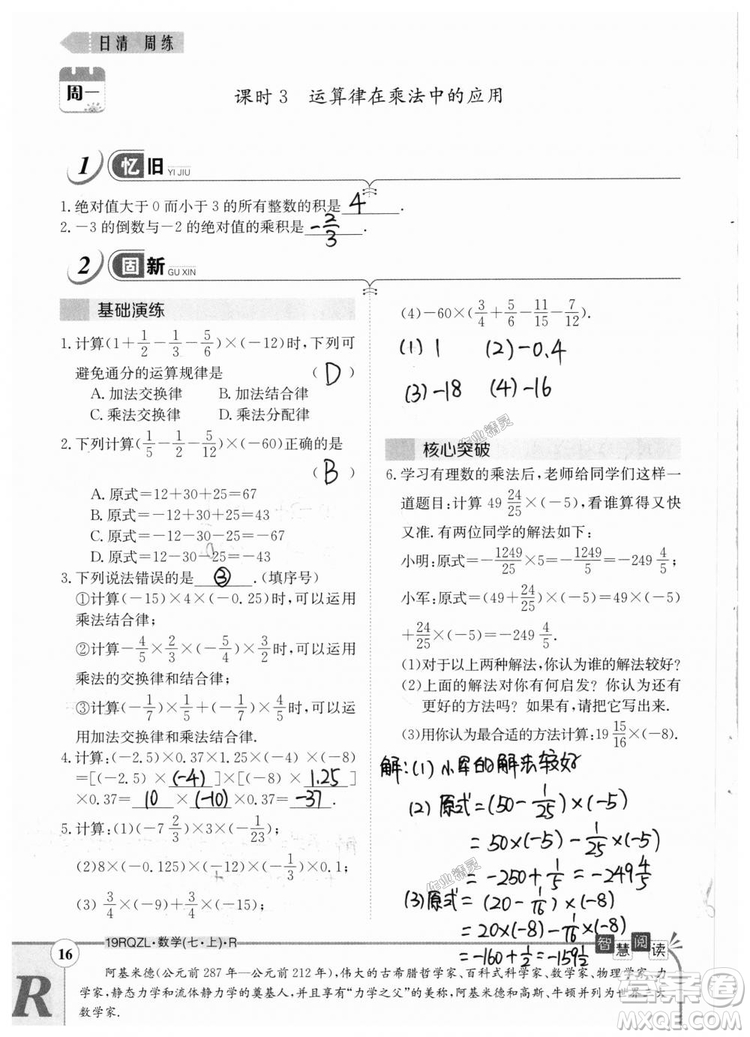 日清 周练
周一
课时3 运算律在乘法中的应用
1 忆旧 YI JIU
1.绝对值大于0而小于3的所有整数的积是 4 .
2.-3的倒数与-2的绝对值的乘积是 -2/3 .
2 固新 GU XIN
基础演练
1.计算(1+1/2-1/3-5/6)×(-12)时,下列可
避免通分的运算规律是 (D)
A.加法交换律 B.加法结合律
C.乘法交换律 D.乘法分配律
2.下列计算(1/5-1/2-5/12)×(-60)正确的是
(B)
A.原式=12+30+25=67
B.原式=-12+30+25=43
C.原式=12-30-25=-43
D.原式=-12-30-25=-67
3.下列说法错误的是 ③ .(填序号)
①计算(-15)×4×(-0.25)时,可以运用
乘法结合律;
②计算-4/5×2/3×(-4/5)时,可以运用
乘法的交换律和结合律;
③计算(-1/7)×(-3/4)×(-1/7)时,可以运
用加法交换律和乘法结合律.
4.计算:(-2.5)×0.37×1.25×(-4)×(-8)
=[(-2.5)× (-4) ]×[(-8)× 1.25 ]
×0.37= 10 × (-10) ×0.37= -37 .
5.计算:(1)(-7 2/3)×3×(-1/23);
(2)8×(-0.125)×(-12)×(-1/3)×0.1;
(3)3/4×(-9)-3/4×(+15);
(4)-60×(3/4+5/6-11/15-7/12).
(1) 1 (2) -0.4
(3) -18 (4) -16
核心突破
6.学习有理数的乘法后,老师给同学们这样一
道题目:计算49 24/25×(-5),看谁算得又快
又准.有两位同学的解法如下:
小明:原式=-1249/25×5=-1249/5=-249 4/5;
小军:原式=(49+24/25)×(-5)=49×(-5)
+24/25×(-5)=-249 4/5.
(1)对于以上两种解法,你认为谁的解法较好?
(2)上面的解法对你有何启发?你认为还有
更好的方法吗?如果有,请把它写出来.
(3)用你认为最合适的方法计算:19 15/16×(-8).
解:(1)小军的解法较好
(2)原式=(50-1/25)×(-5)
=50×(-5)-1/25×(-5)
=-250+1/5=-249 4/5
(3)原式=(20-1/16)×(-8)
=20×(-8)-1/16×(-8)
=-160+1/2=-159 1/2
智慧阅读
16 19RQZL·数学(七·上)·R
R
阿基米德(公元前287年—公元前212年),伟大的古希腊哲学家、百科式科学家、数学家、物理学家、力
学家,静态力学和流体静力学的奠基人,并且享有“力学之父”的美称,阿基米德和高斯、牛顿并列为世界三大
数学家.